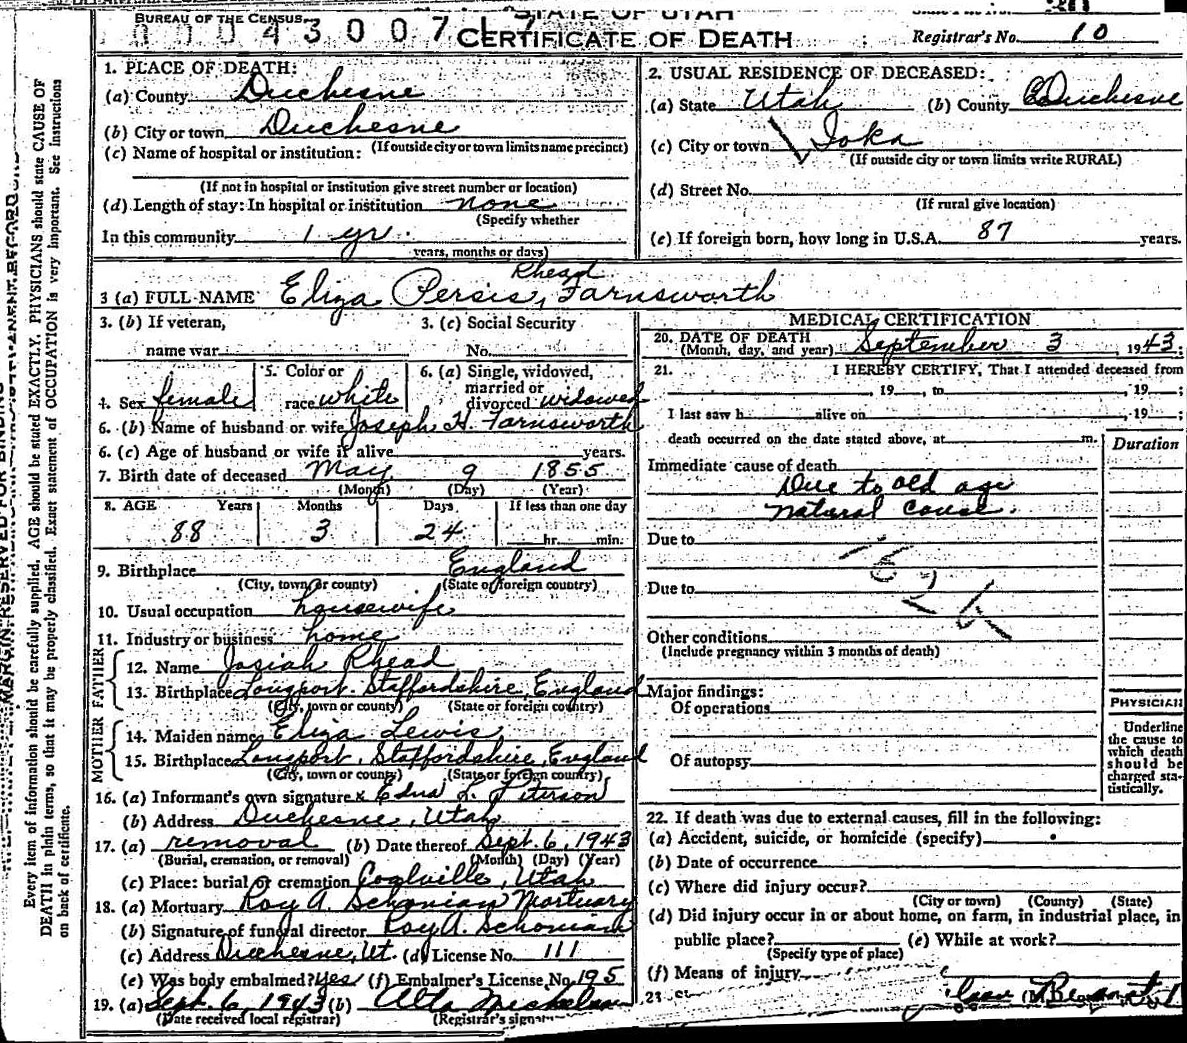 STATE OF UTAH
BUREAU OF THE CENSUS
0 0 0 4 3 0 0 7 1 7
CERTIFICATE OF DEATH
Registrar's No. 10
1. PLACE OF DEATH:
(a) County Duchesne
(b) City or town Duchesne
(If outside city or town limits name precinct)
(c) Name of hospital or institution:
(If not in hospital or institution give street number or location)
(d) Length of stay: In hospital or institution none
(Specify whether
In this community 1 yr.
years, months or days)
2. USUAL RESIDENCE OF DECEASED:
(a) State Utah (b) County Duchesne
(c) City or town Ioka
(If outside city or town limits write RURAL)
(d) Street No.
(If rural give location)
(e) If foreign born, how long in U.S.A. 87 years.
Rhead
3 (a) FULL NAME Eliza Persis, Farnsworth
3. (b) If veteran,
name war
3. (c) Social Security
No.
4. Sex female
5. Color or
race white
6. (a) Single, widowed,
married or
divorced widowed
6. (b) Name of husband or wife Joseph H. Farnsworth
6. (c) Age of husband or wife if alive years.
7. Birth date of deceased May 9 1855
(Month) (Day) (Year)
8. AGE Years Months Days If less than one day
88 3 24 hr. min.
9. Birthplace England
(City, town or county) (State or foreign country)
10. Usual occupation housewife
11. Industry or business home
FATHER
12. Name Josiah Rhead
13. Birthplace Longport. Staffordshire, England
(City, town or county) (State or foreign country)
MOTHER
14. Maiden name Eliza Lewis
15. Birthplace Longport, Staffordshire, England
(City, town or county) (State or foreign country)
16. (a) Informant's own signature x Edna L. Peterson
(b) Address Duchesne, Utah
17. (a) removal (b) Date thereof Sept. 6, 1943
(Burial, cremation, or removal) (Month) (Day) (Year)
(c) Place: burial or cremation Coalville, Utah
18. (a) Mortuary Roy A. Schonian Mortuary
(b) Signature of funeral director Roy A. Schonian
(c) Address Duchesne, Ut. (d) License No. 111
(e) Was body embalmed? Yes (f) Embalmer's License No. 195
19. (a) Sept. 6, 1943 (b) Alta
(Date received local registrar) (Registrar's
MEDICAL CERTIFICATION
20. DATE OF DEATH
(Month, day, and year) September 3, 1943;
21. I HEREBY CERTIFY, That I attended deceased from
, 19 , to , 19 ;
I last saw h alive on , 19 ;
death occurred on the date stated above, at m.
Duration
Immediate cause of death
Due to old age
natural cause.
Due to
Due to
Other conditions
(Include pregnancy within 3 months of death)
Major findings:
Of operations
Of autopsy
PHYSICIAN
Underline
the cause to
which death
should be
charged sta-
tistically.
22. If death was due to external causes, fill in the following:
(a) Accident, suicide, or homicide (specify)
(b) Date of occurrence
(c) Where did injury occur?
(City or town) (County) (State)
(d) Did injury occur in or about home, on farm, in industrial place, in
public place? (e) While at work?
(Specify type of place)
(f) Means of injury
23.
Every item of information should be carefully supplied. AGE should be stated EXACTLY. PHYSICIANS should state CAUSE OF
DEATH in plain terms, so that it may be properly classified. Exact statement of OCCUPATION is very important. See instructions
on back of certificate.